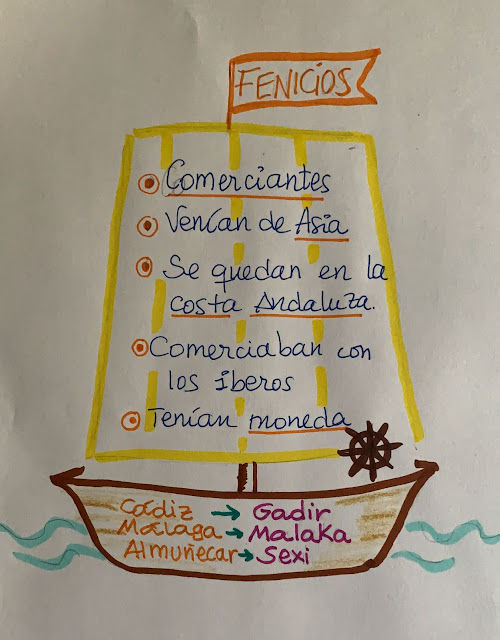 FENICIOS
Comerciantes
Venían de Asia
Se quedan en la
costa Andaluza.
Comerciaban con
los íberos
Tenían moneda
Cádiz → Gadir
Málaga → Malaka
Almuñecar → Sexi